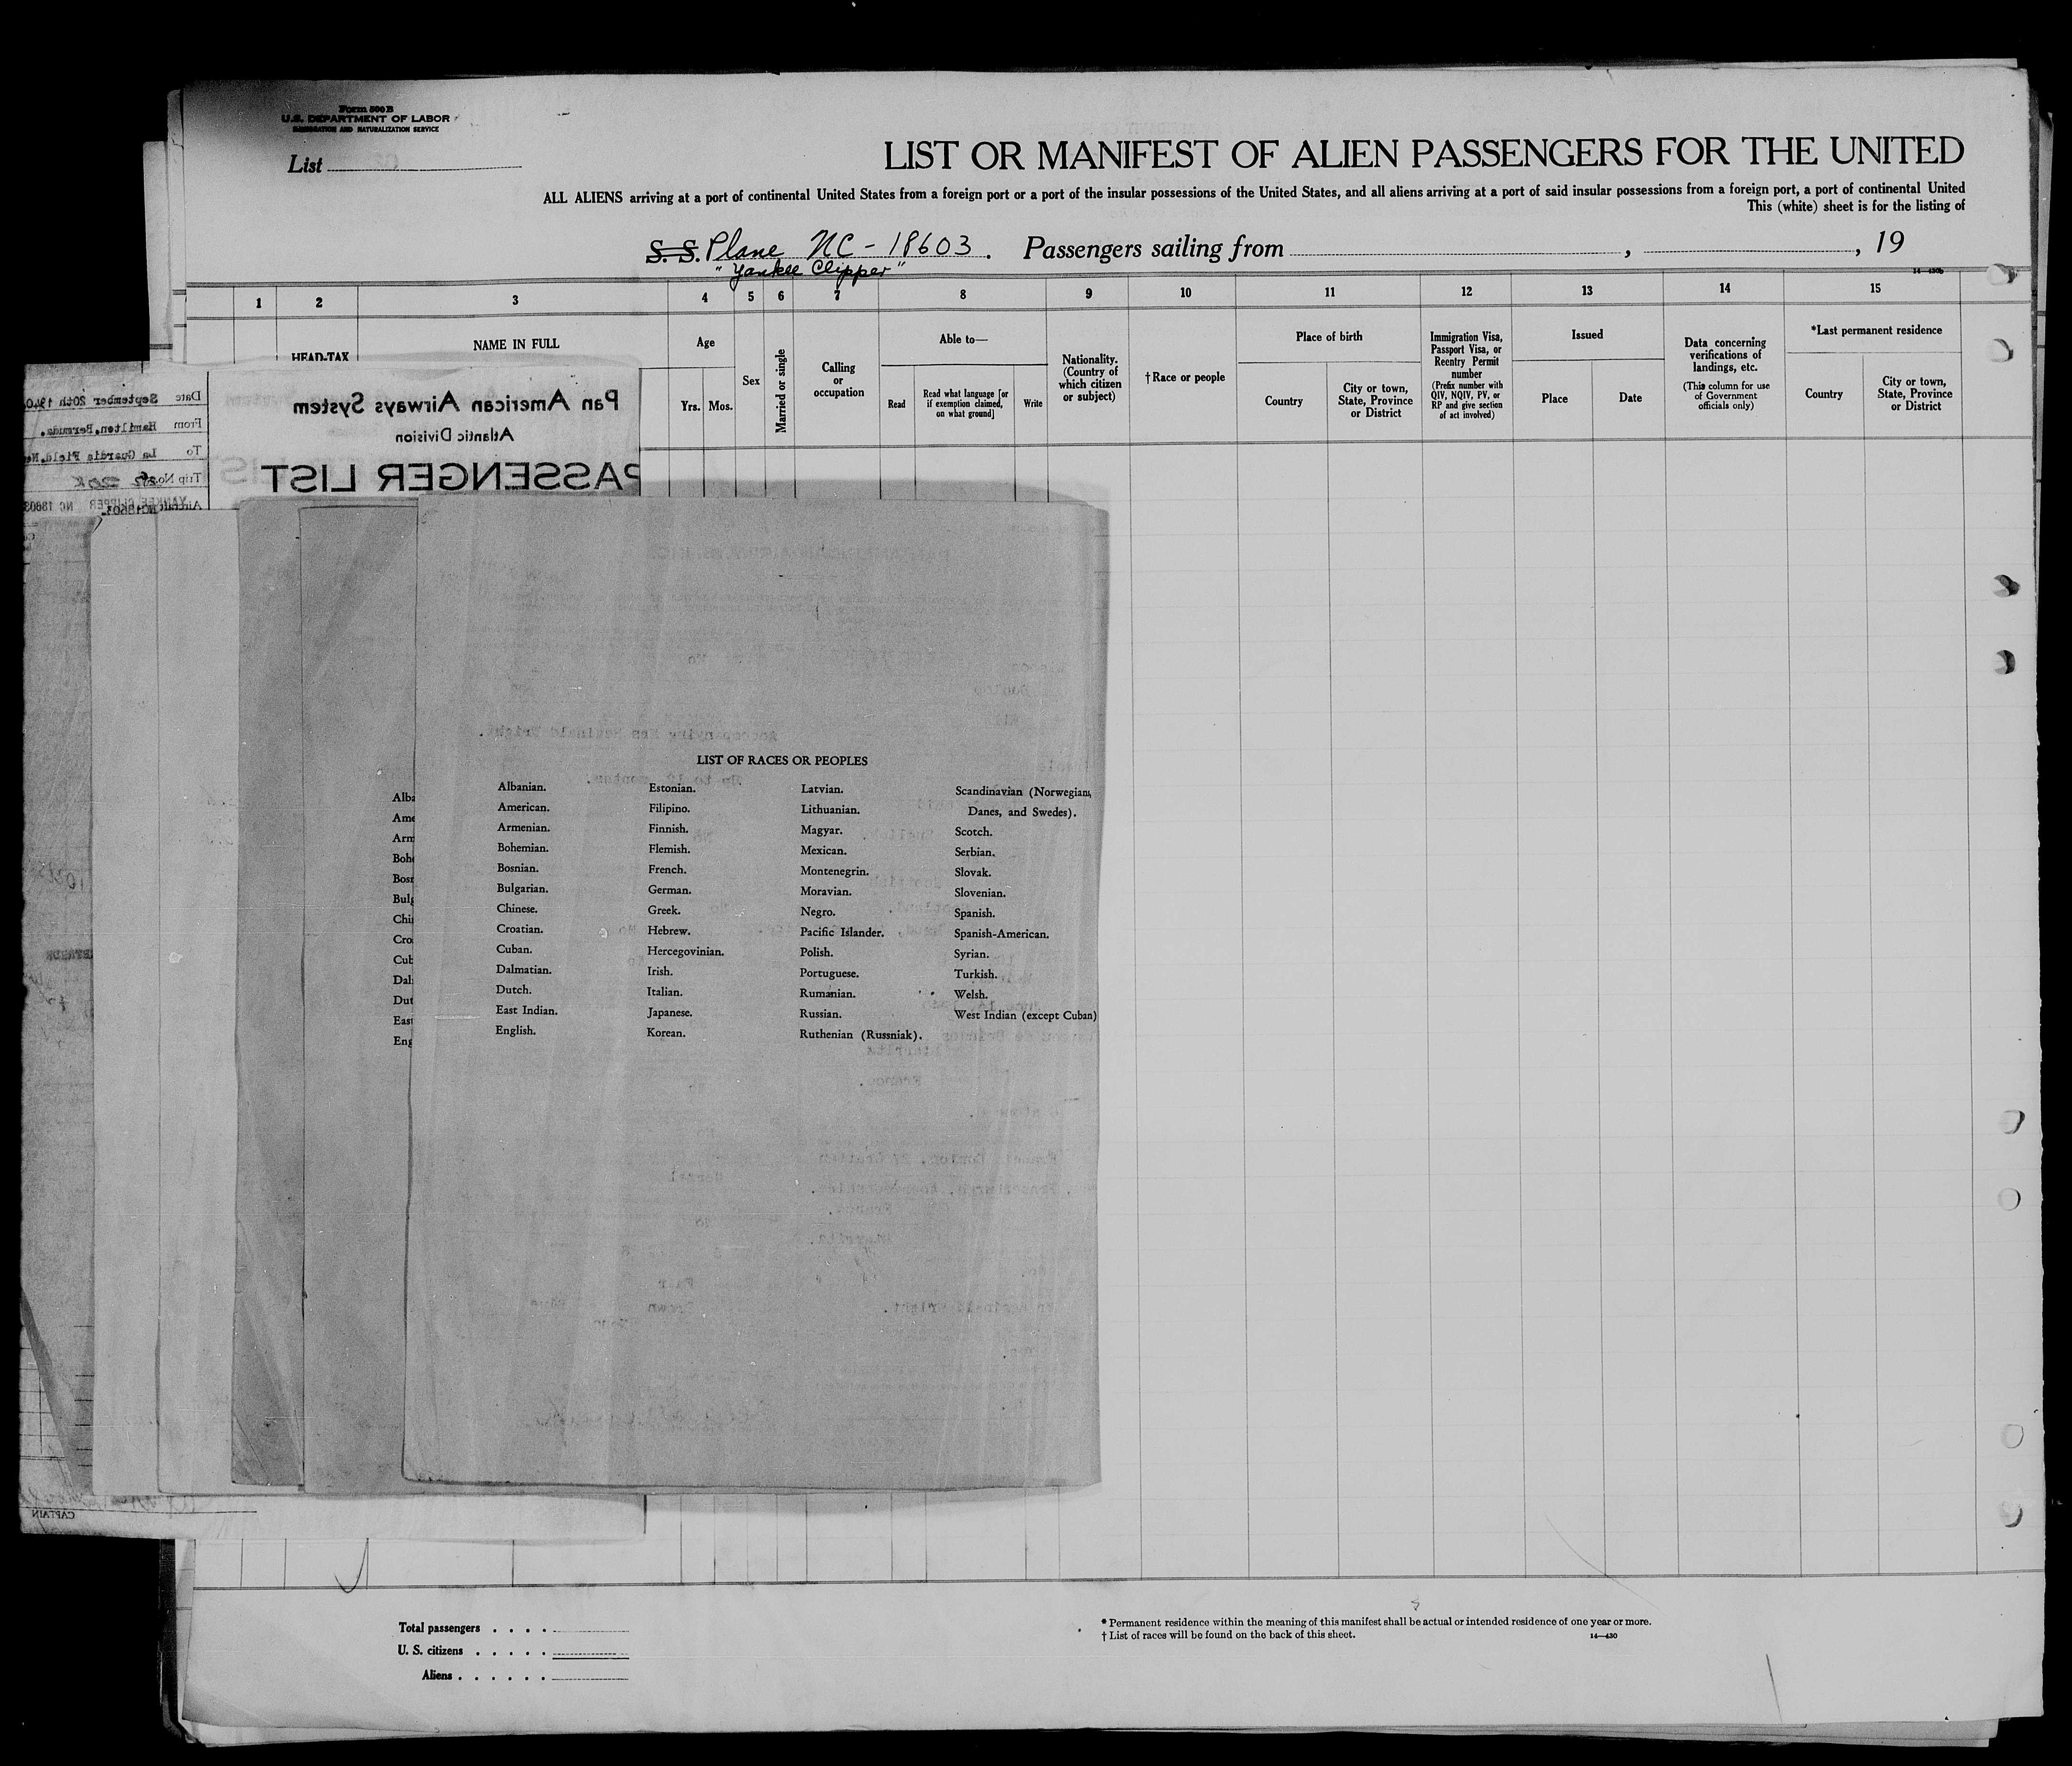 Form 500 B
U.S. DEPARTMENT OF LABOR
IMMIGRATION AND NATURALIZATION SERVICE
List
LIST OR MANIFEST OF ALIEN PASSENGERS FOR THE UNITED
ALL ALIENS arriving at a port of continental United States from a foreign port or a port of the insular possessions of the United States, and all aliens arriving at a port of said insular possessions from a foreign port, a port of continental United
This (white) sheet is for the listing of
S. S. Plane NC-18603. Passengers sailing from , , 19
"Yankee Clipper"
1 2 3 4 5 6 7 8 9 10 11 12 13 14 15
HEAD-TAX
NAME IN FULL
Age
Yrs. Mos.
Sex
Married or single
Calling or occupation
Able to—
Read
Read what language [or if exemption claimed, on what ground]
Write
Nationality. (Country of which citizen or subject)
†Race or people
Place of birth
Country
City or town, State, Province or District
Immigration Visa, Passport Visa, or Reentry Permit number
(Prefix number with QIV, NQIV, PV, or RP and give section of act involved)
Issued
Place
Date
Data concerning verifications of landings, etc.
(This column for use of Government officials only)
*Last permanent residence
Country
City or town, State, Province or District
Pan American Airways System
Atlantic Division
PASSENGER LIST
Date September 20th 1940.
From Hamilton, Bermuda.
To La Guardia Field, Ne
Trip No.
Aircraft YANKEE CLIPPER NC 18603
LIST OF RACES OR PEOPLES
Albanian. Estonian. Latvian. Scandinavian (Norwegians,
American. Filipino. Lithuanian. Danes, and Swedes).
Armenian. Finnish. Magyar. Scotch.
Bohemian. Flemish. Mexican. Serbian.
Bosnian. French. Montenegrin. Slovak.
Bulgarian. German. Moravian. Slovenian.
Chinese. Greek. Negro. Spanish.
Croatian. Hebrew. Pacific Islander. Spanish-American.
Cuban. Hercegovinian. Polish. Syrian.
Dalmatian. Irish. Portuguese. Turkish.
Dutch. Italian. Rumanian. Welsh.
East Indian. Japanese. Russian. West Indian (except Cuban)
English. Korean. Ruthenian (Russniak).
Alba
Ame
Arm
Bohe
Bosn
Bulg
Chi
Cro
Cub
Dal
Dut
East
Eng
CAPTAIN
Total passengers . . . .
U. S. citizens . . . . .
Aliens . . . . . .
* Permanent residence within the meaning of this manifest shall be actual or intended residence of one year or more.
† List of races will be found on the back of this sheet.
14—430